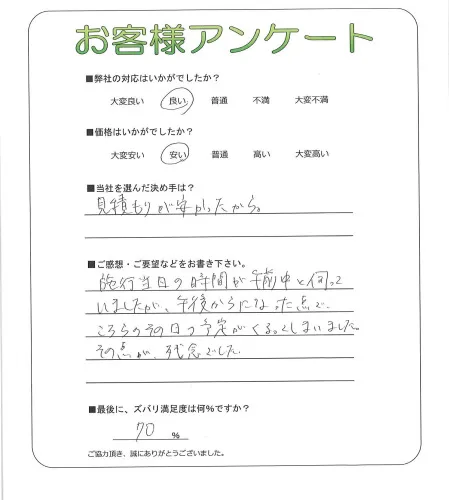 お客様アンケート
■弊社の対応はいかがでしたか?
大変良い 良い 普通 不満 大変不満
■価格はいかがでしたか?
大変安い 安い 普通 高い 大変高い
■当社を選んだ決め手は?
見積もりが安かったから。
■ご感想・ご要望などをお書き下さい。
施行当日の時間が午前中と伺って
いましたが、午後からになった点で、
こちらのその日の予定がくるってしまいました。
その点が、残念でした。
■最後に、ズバリ満足度は何%ですか?
70 %
ご協力頂き、誠にありがとうございました。